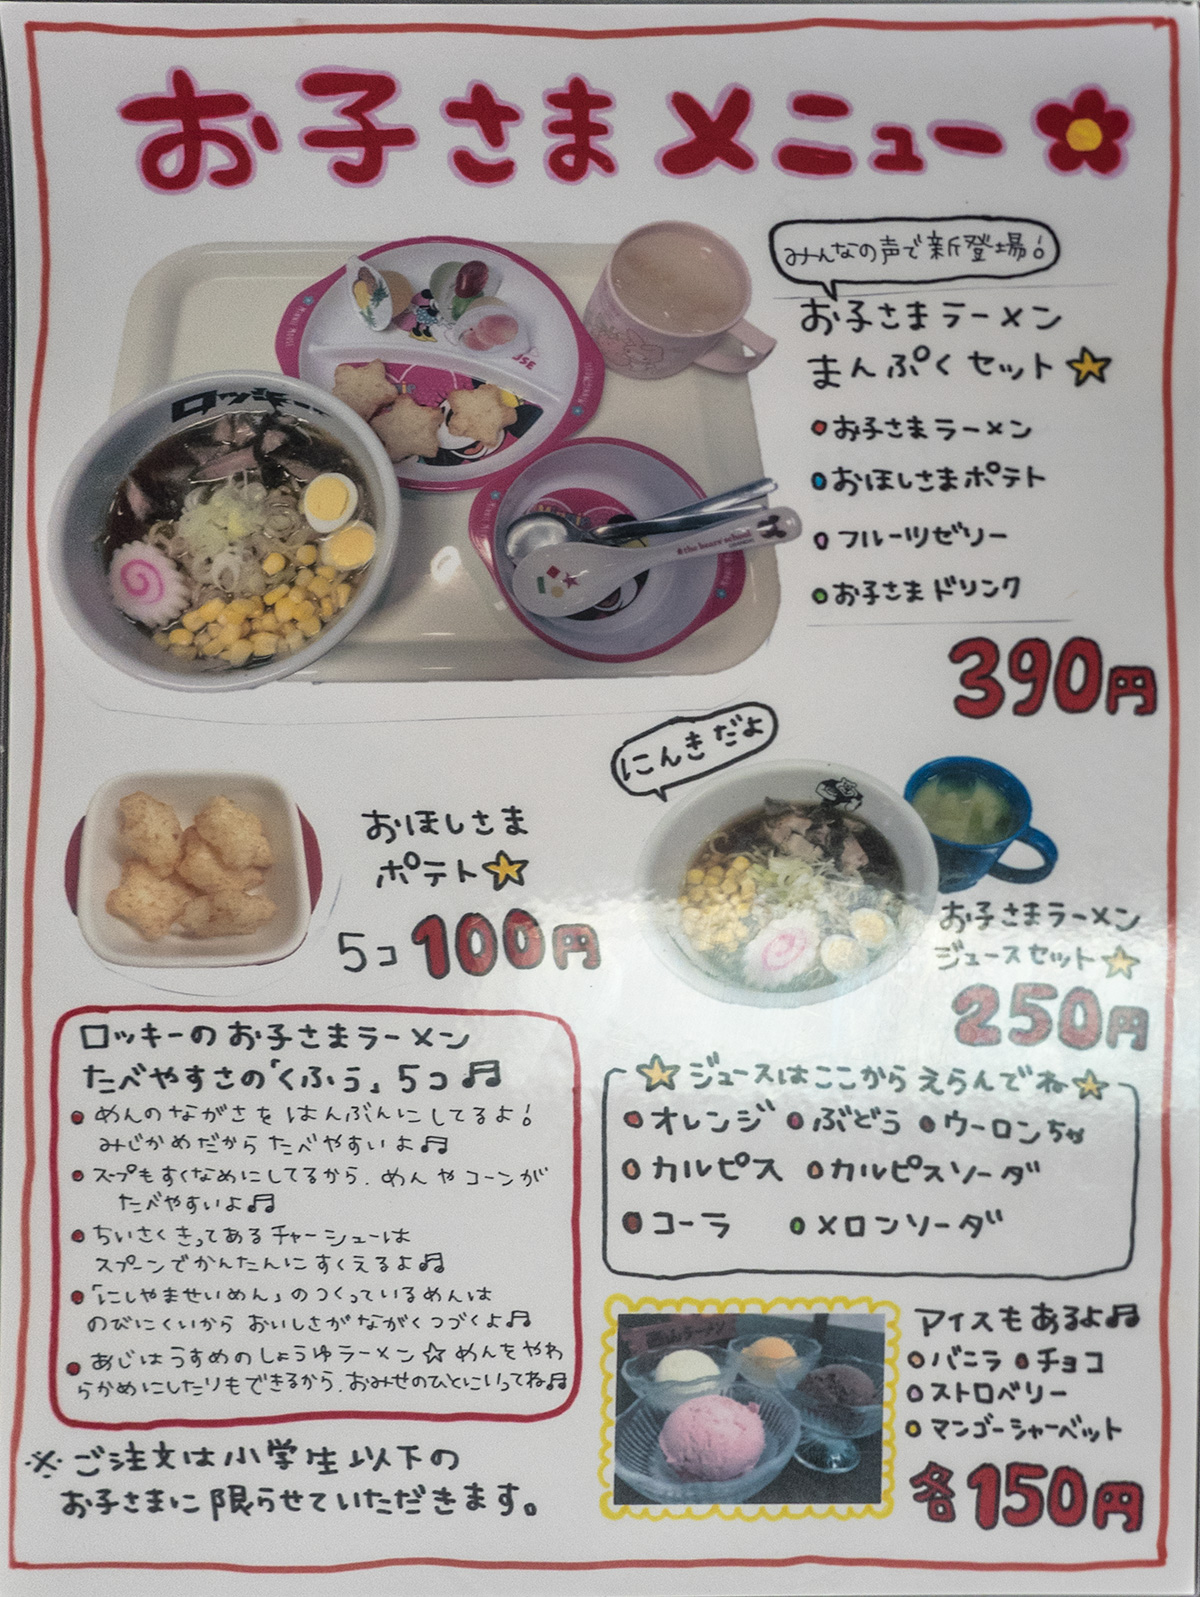 お子さまメニュー
みんなの声で新登場!
お子さまラーメン
まんぷくセット
お子さまラーメン
おほしさまポテト
フルーツゼリー
お子さまドリンク
390円
ロッキー
#the bears school
にんきだよ
おほしさま
ポテト
5コ 100円
お子さまラーメン
ジュースセット
250円
ロッキーのお子さまラーメン
たべやすさの「くふう」5コ♬
めんのながさをはんぶんにしてるよ!
みじかめだからたべやすいよ♬
スープもすくなめにしてるから、めんやコーンが
たべやすいよ♬
ちいさくきってあるチャーシューは
スプーンでかんたんにすくえるよ♬
「にしやませいめん」のつくっているめんは
のびにくいからおいしさがながくつづくよ♬
あじはうすめのしょうゆラーメン☆めんをやわ
らかめにしたりもできるから、おみせのひとにいってね♬
※ご注文は小学生以下の
お子さまに限らせていただきます。
ジュースはここからえらんでね
オレンジ ぶどう ウーロンちゃ
カルピス カルピスソーダ
コーラ メロンソーダ
アイスもあるよ♬
バニラ チョコ
ストロベリー
マンゴーシャーベット
各150円